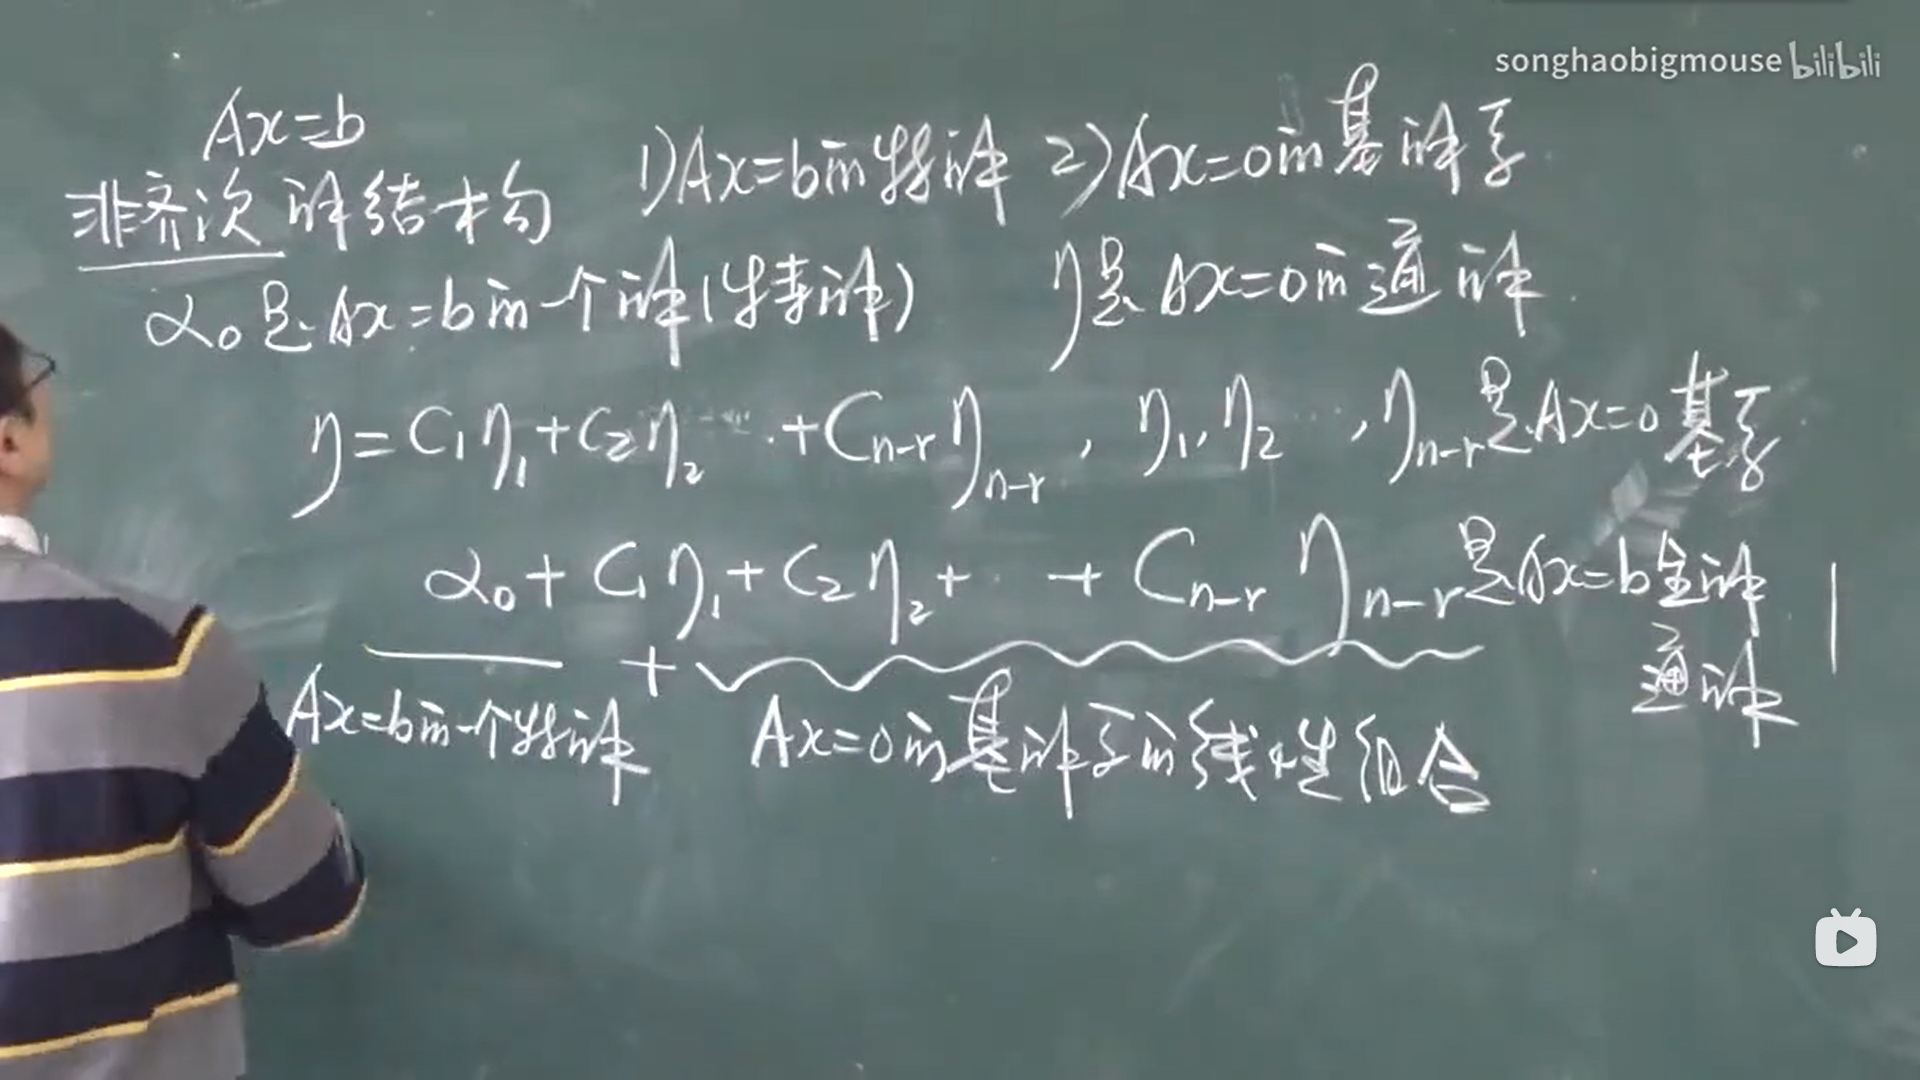 songhaobigmouse bilibili
Ax=b
非齐次解结构
1)Ax=b的特解 2)Ax=0的基础解系
α₀是Ax=b的一个解(特解) η是Ax=0的通解
η=C₁η₁+C₂η₂…+Cₙ₋ᵣηₙ₋ᵣ, η₁,η₂…,ηₙ₋ᵣ是Ax=0基系
α₀+C₁η₁+C₂η₂+…+Cₙ₋ᵣηₙ₋ᵣ是Ax=b全解
通解
+
Ax=b的一个特解 Ax=0的基解系的线性组合